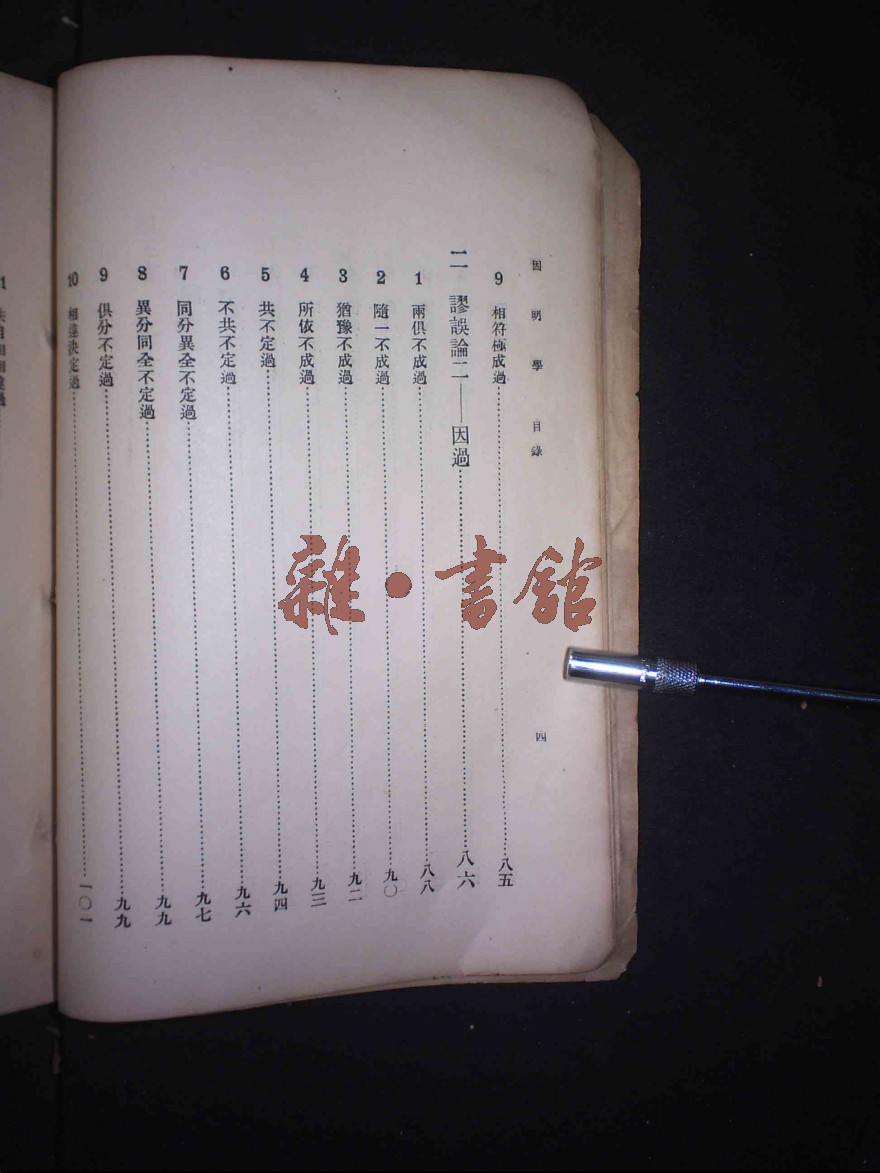 因明學 目錄
四
9 相符極成過……八五
二 謬誤論二——因過……八六
1 兩俱不成過……八八
2 隨一不成過……九〇
3 猶豫不成過……九二
4 所依不成過……九三
5 共不定過……九四
6 不共不定過……九六
7 同分異全不定過……九七
8 異分同全不定過……九九
9 俱分不定過……九九
10 相違決定過……一〇一
雜·書館